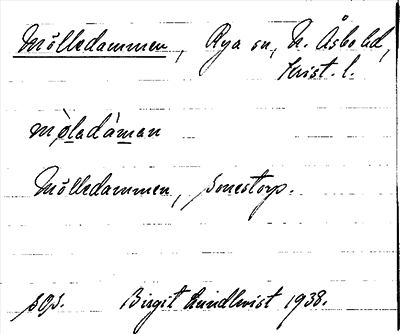 Mölledammen, Rya sn, N. Åsbo hd,
Krist. l.
mø̀ladàman
Mölledammen, Sonestorp.
sgs. Birgit Lundkvist 1938.